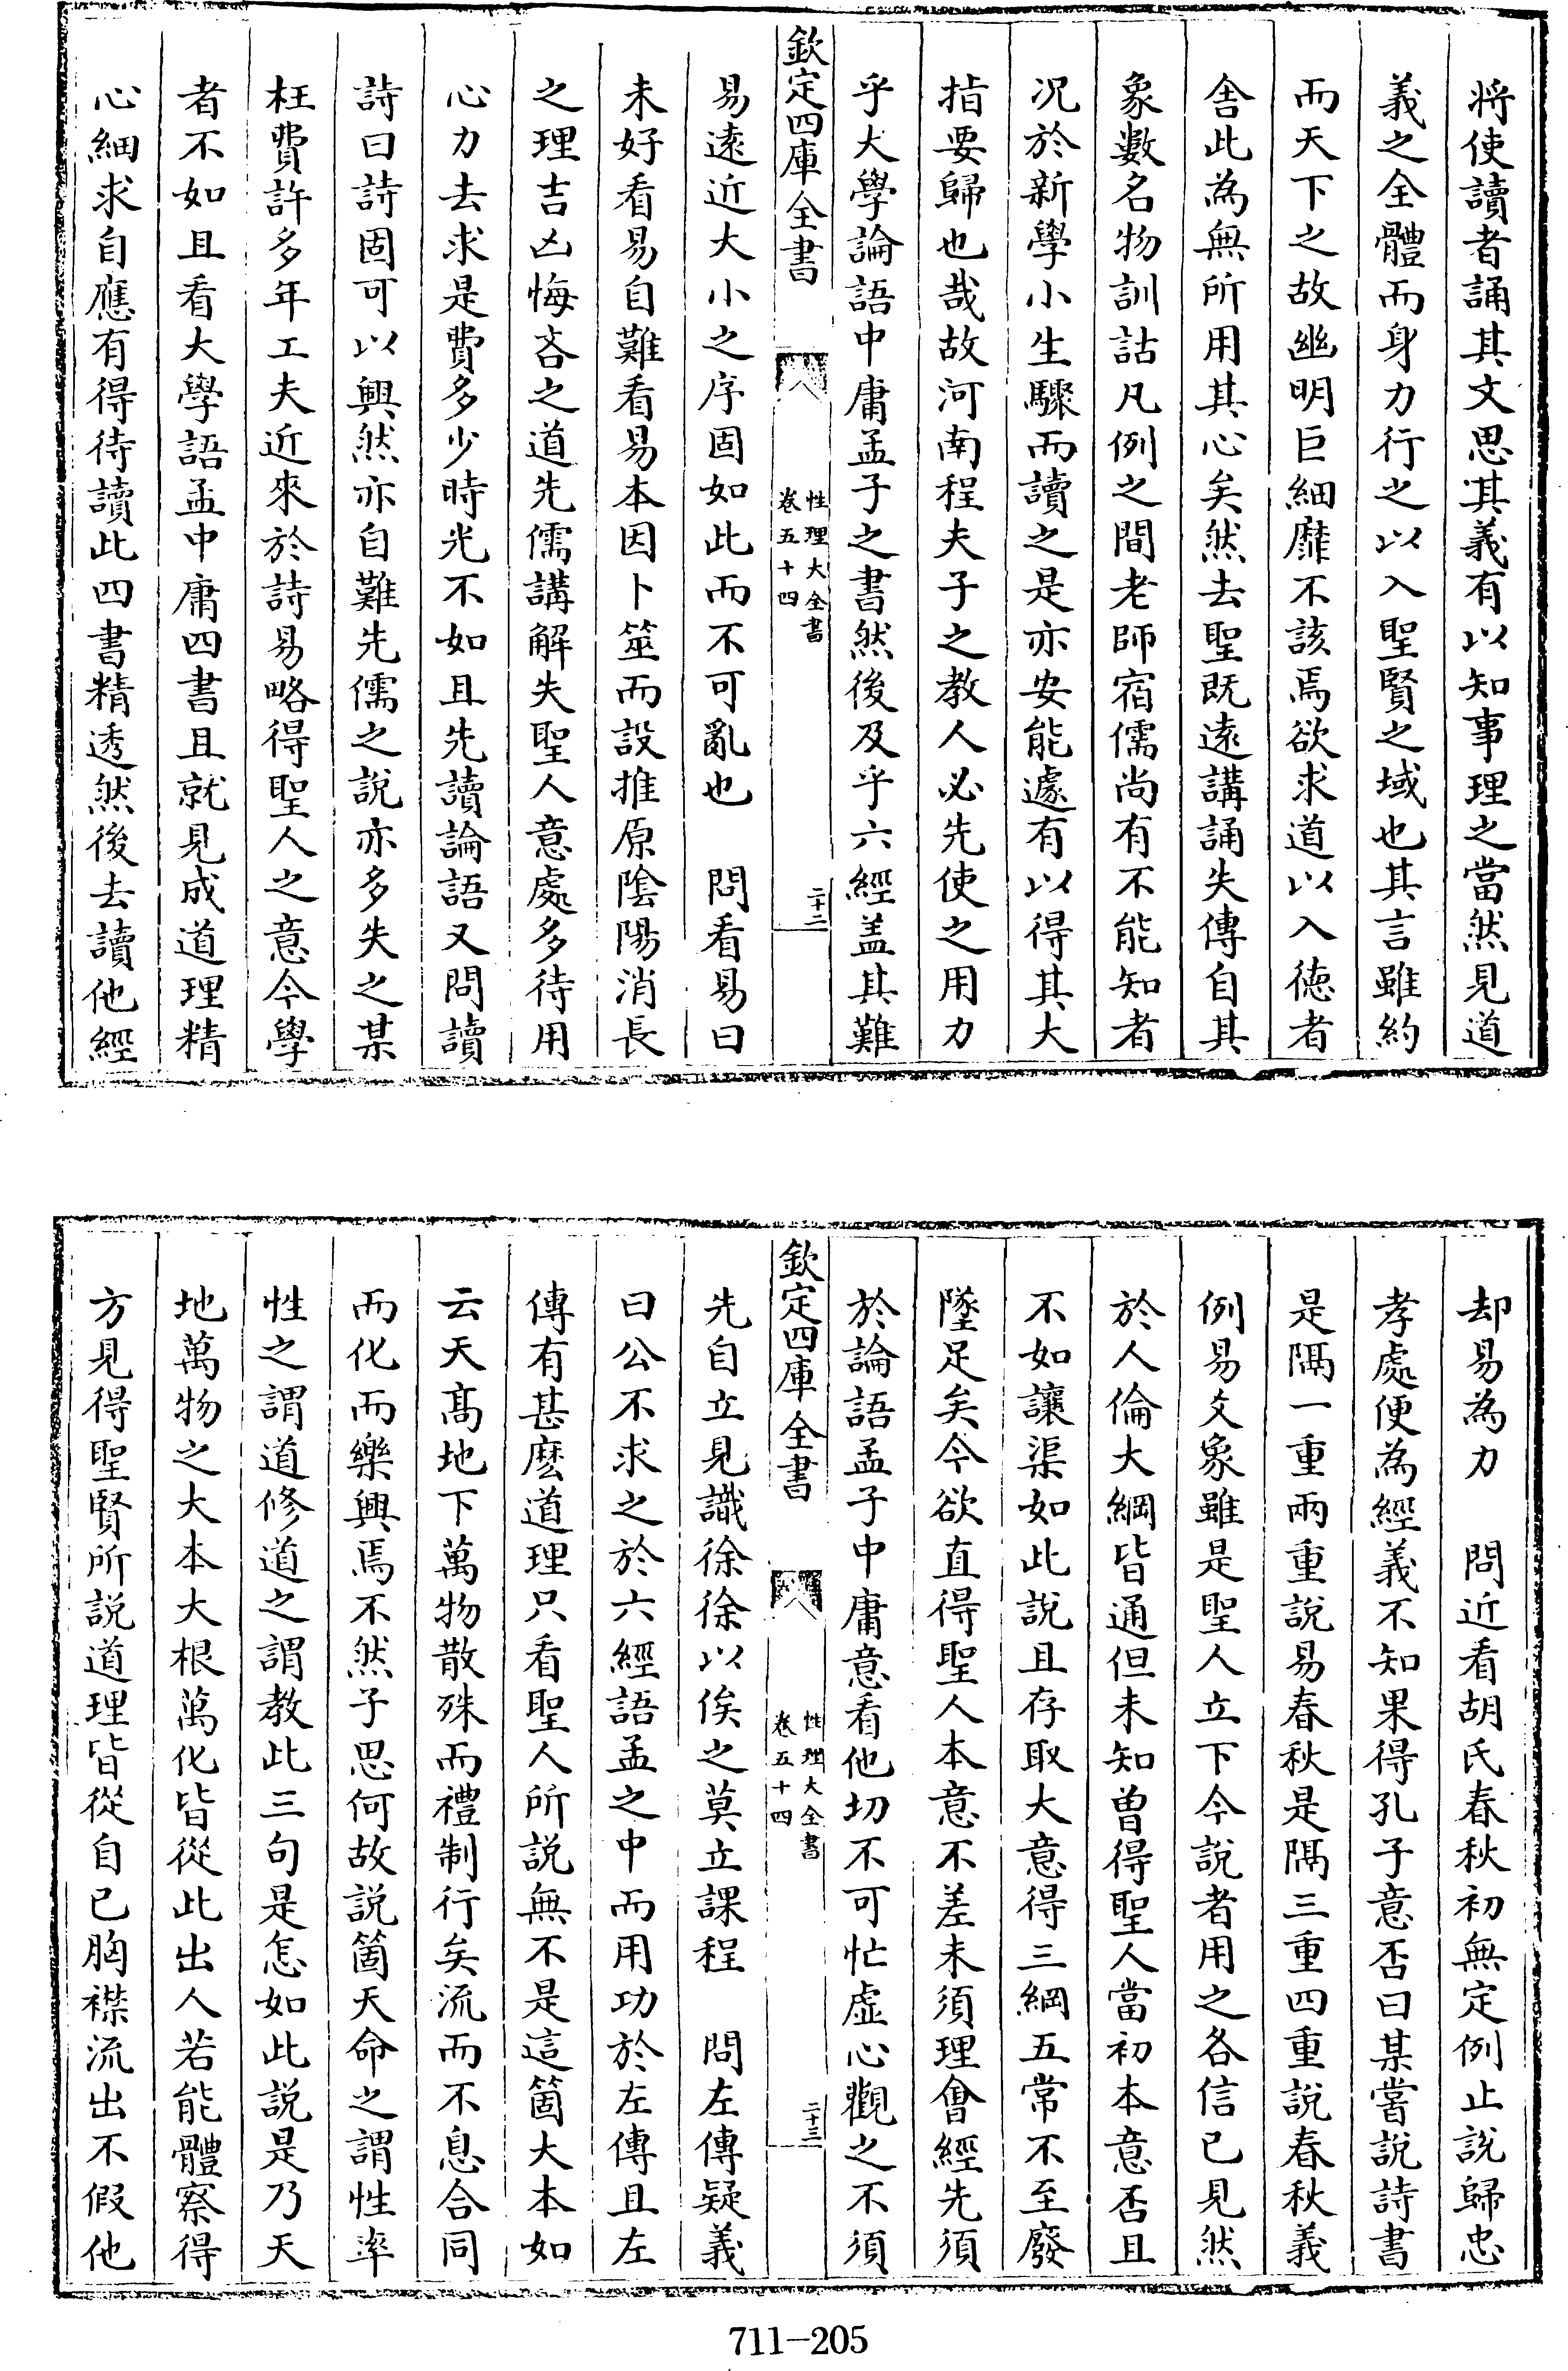 將使讀者誦其文思其義有以知事理之當然見道
義之全體而身力行之以入聖賢之域也其言雖約
而天下之故幽明巨細靡不該焉欲求道以入德者
舍此為無所用其心矣然去聖既遠講誦失傳自其
象數名物訓詁凡例之間老師宿儒尚有不能知者
况於新學小生驟而讀之是亦安能遽有以得其大
指要歸也哉故河南程夫子之教人必先使之用力
乎大學論語中庸孟子之書然後及乎六經盖其難
欽定四庫全書
性理大全書
卷五十四
二十二
易遠近大小之序固如此而不可亂也　問看易曰
未好看易自難看易本因卜筮而設推原陰陽消長
之理吉凶悔吝之道先儒講解失聖人意處多待用
心力去求是費多少時光不如且先讀論語又問讀
詩曰詩固可以興然亦自難先儒之說亦多失之某
枉費許多年工夫近來於詩易略得聖人之意今學
者不如且看大學語孟中庸四書且就見成道理精
心細求自應有得待讀此四書精透然後去讀他經
却易為力　問近看胡氏春秋初無定例止說歸忠
孝處便為經義不知果得孔子意否曰某嘗説詩書
是隔一重兩重說易春秋是隔三重四重說春秋義
例易爻象雖是聖人立下今說者用之各信已見然
於人倫大綱皆通但未知曾得聖人當初本意否且
不如讓渠如此說且存取大意得三綱五常不至廢
墜足矣今欲直得聖人本意不差未須理會經先須
於論語孟子中庸意看他切不可忙虛心觀之不須
欽定四庫全書
性理大全書
卷五十四
二十三
先自立見識徐徐以俟之莫立課程　問左傳疑義
曰公不求之於六經語孟之中而用功於左傳且左
傳有甚麽道理只看聖人所説無不是這箇大本如
云天髙地下萬物散殊而禮制行矣流而不息合同
而化而樂興焉不然子思何故説箇天命之謂性率
性之謂道修道之謂教此三句是怎如此説是乃天
地萬物之大本大根萬化皆從此出人若能體察得
方見得聖賢所説道理皆從自已胸襟流出不假他
711-205